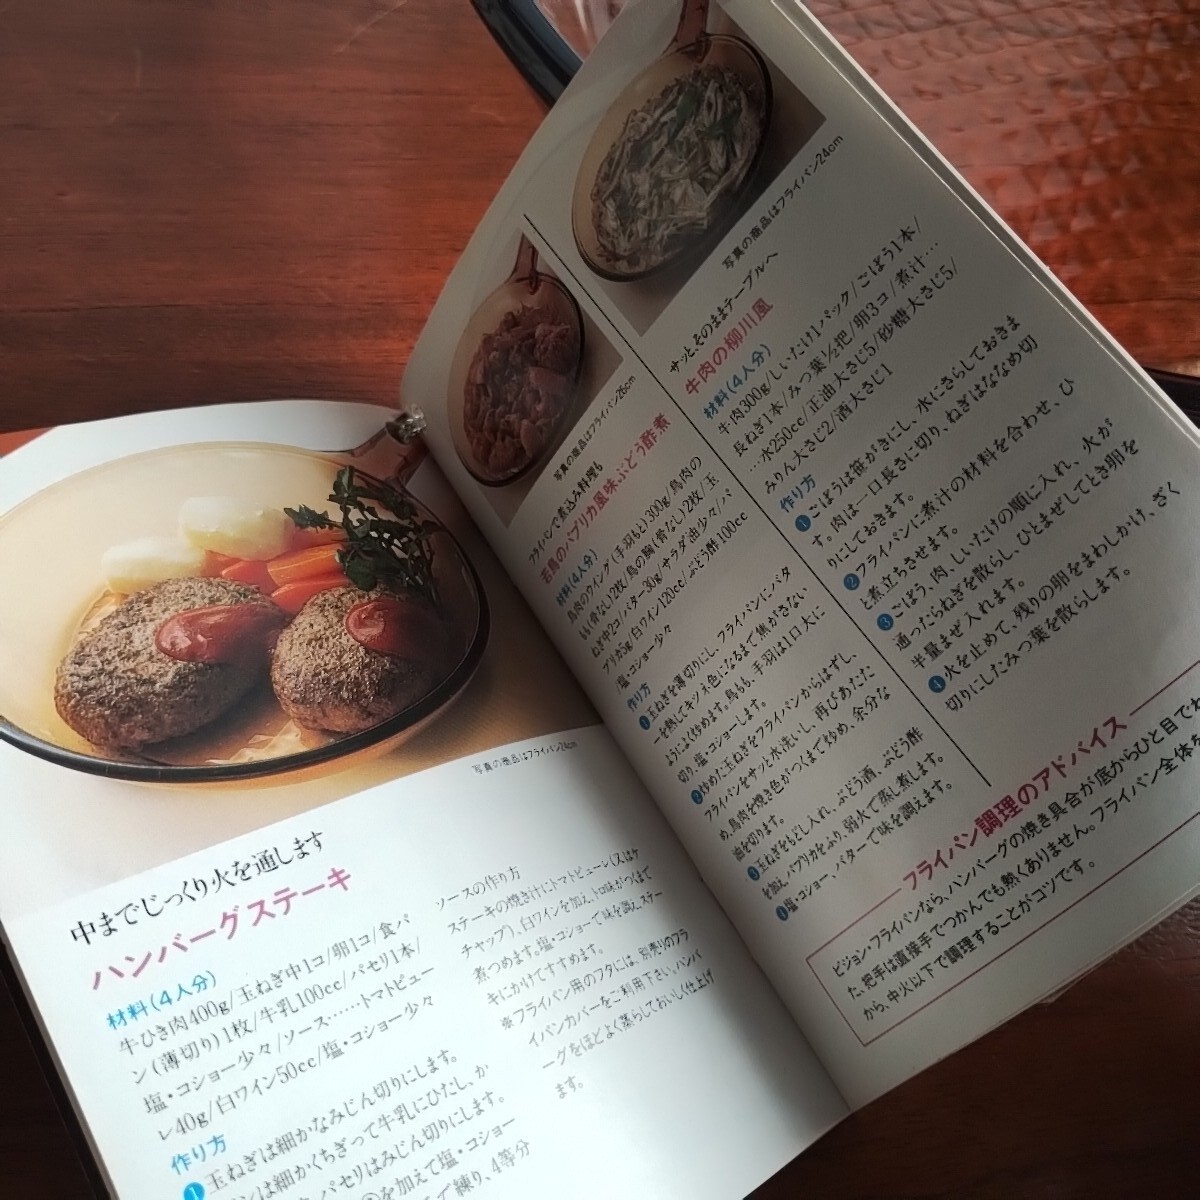 写真の商品はフライパン24cm
中までじっくり火を通します
ハンバーグステーキ
材料(4人分)
牛ひき肉400g/玉ねぎ中1コ/卵1コ/食パ
ン(薄切り)1枚/牛乳100cc/パセリ1本/
塩・コショー少々/ソース……トマトピュー
レ40g/白ワイン50cc/塩・コショー少々
作り方
❶玉ねぎは細かなみじん切りにします。
ンは細かくちぎって牛乳にひたし、か
パセリはみじん切りにします。
を加えて塩・コショー
で練り、4等分
ソースの作り方
ステーキの焼き汁にトマトピューレ(又はケ
チャップ)、白ワインを加え、トロ味がつくまで
煮つめます。塩・コショーで味を調え、ステー
キにかけてすすめます。
※フライパン用のフタには、別売りのフラ
イパンカバーをご利用下さい。ハンバ
ーグをほどよく蒸らしておいしく仕上げ
ます。
写真の商品はフライパン26cm
フライパンで煮込み料理も
若鳥のパプリカ風味ぶどう酢煮
材料(4人分)
鳥肉のウイング(手羽もと)300g/鳥肉の
もも(骨なし)2枚/鳥の胸(骨なし)2枚/玉
ねぎ中2コ/バター30g/サラダ油少々/パ
プリカ5g/白ワイン120cc/ぶどう酢100cc
/塩・コショー少々
作り方
❶玉ねぎを薄切りにし、フライパンにバタ
ーを熱してキツネ色になるまで焦がさない
ようによく炒めます。鳥もも、手羽は1口大に
切り、塩・コショーします。
❷炒めた玉ねぎをフライパンからはずし、
フライパンをサッと水洗いし、再びあたた
め、鳥肉を焼き色がつくまで炒め、余分な
油を切ります。
❸玉ねぎをもどし入れ、ぶどう酒、ぶどう酢
を加え、パプリカをふり、弱火で蒸し煮します。
❹塩・コショー、バターで味を調えます。
写真の商品はフライパン24cm
サッと、そのままテーブルへ
牛肉の柳川風
材料(4人分)
牛肉300g/しいたけ1パック/ごぼう1本/
長ねぎ1本/みつ葉½把/卵3コ/煮汁…
…水250cc/正油大さじ5/砂糖大さじ5/
みりん大さじ2/酒大さじ1
作り方
❶ごぼうは笹がきにし、水にさらしておきま
す。肉は一口長さに切り、ねぎはななめ切
りにしておきます。
❷フライパンに煮汁の材料を合わせ、ひ
と煮立ちさせます。
❸ごぼう、肉、しいたけの順に入れ、火が
通ったらねぎを散らし、ひとまぜしてとき卵を
半量まぜ入れます。
❹火を止めて、残りの卵をまわしかけ、ざく
切りにしたみつ葉を散らします。
フライパン調理のアドバイス
ビジョン・フライパンなら、ハンバーグの焼き具合が底からひと目でわ
た、把手は直接手でつかんでも熱くありません。フライパン全体を
から、中火以下で調理することがコツです。